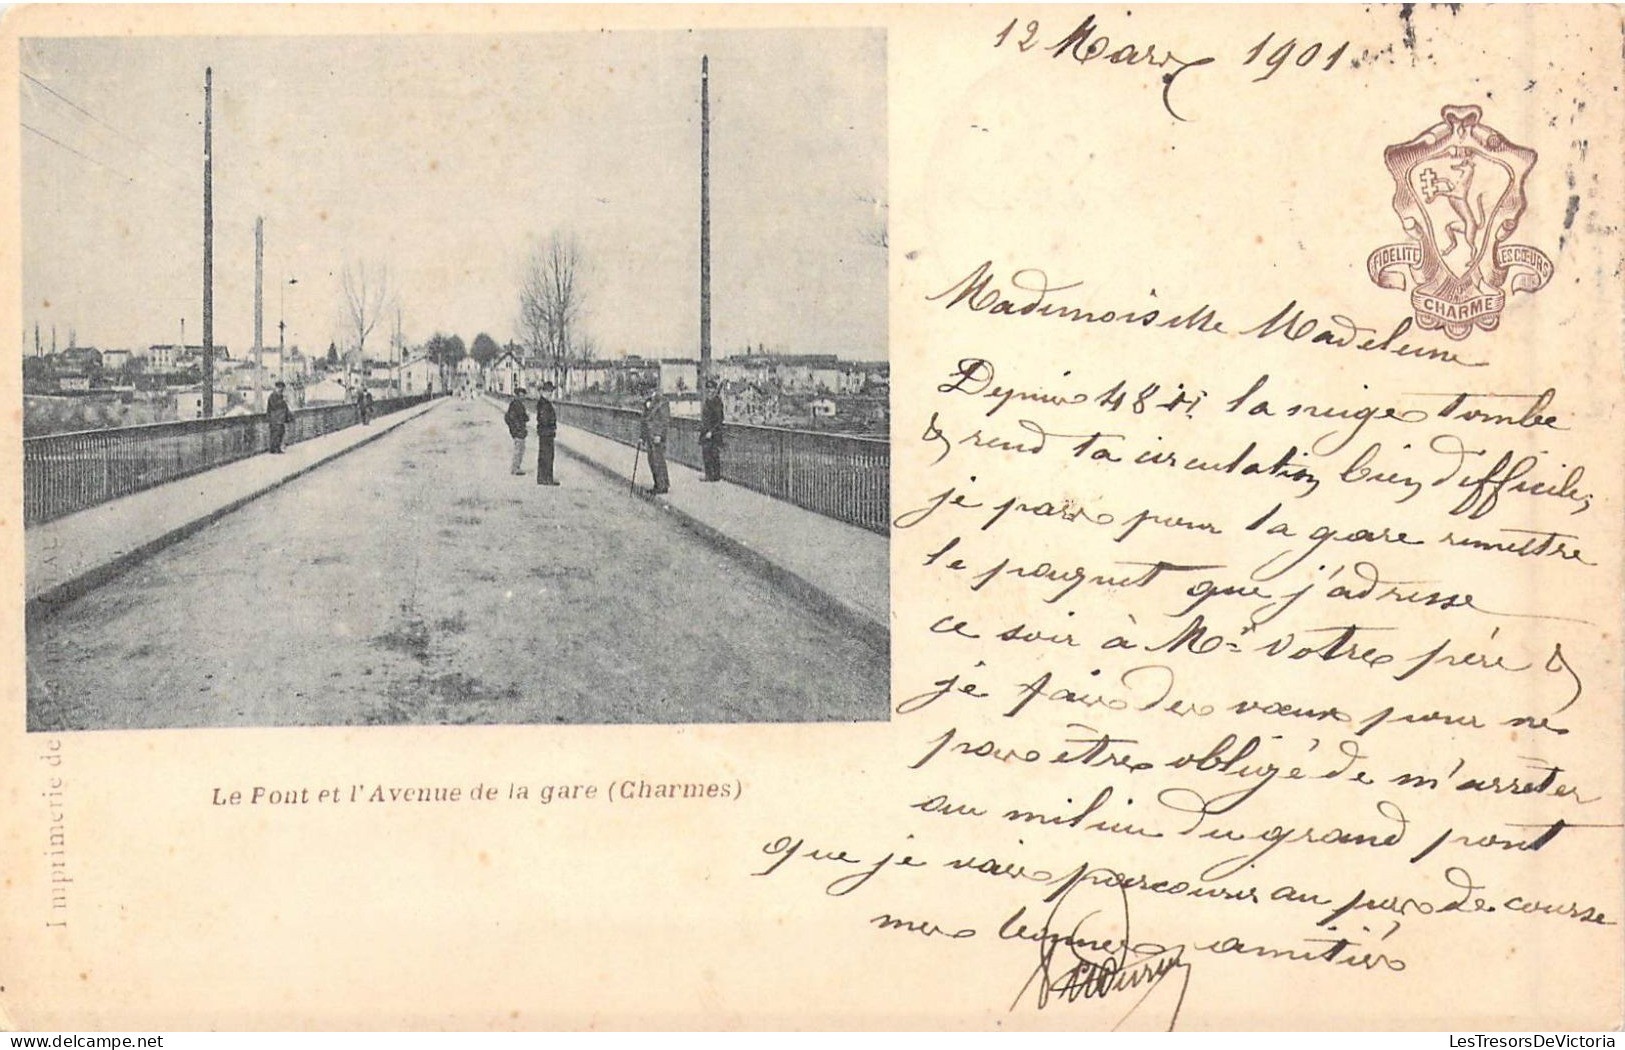 12 Mars 1901
FIDELITE LES CŒURS
CHARME
Mademoiselle Madeleine
Depuis 48 h la neige tombe
& rend la circulation bien difficile,
je pars pour la gare remettre
le paquet que j'adresse
ce soir à Mr votre père &
je fais des vœux pour ne
pas être obligé de m'arrêter
au milieu du grand pont
que je vais parcourir au pas de course
mes bonnes amitiés
Le Pont et l'Avenue de la gare (Charmes)
Imprimerie de
LesTresorsDeVictoria